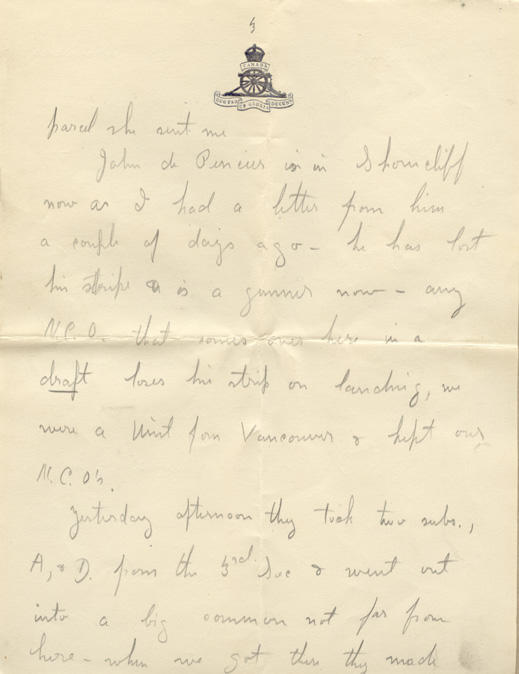 3
CANADA
QUO FAS ET GLORIA DUCUNT
parcel she sent me
John de Pencier is in Shorncliff
now as I had a letter from him
a couple of days ago - he has lost
his stripe & is a gunner now - any
N.C.O. that comes over here in a
draft loses his strip on landing, we
were a Unit from Vancouver & kept our
N.C.O's.
Yesterday afternoon they took two subs.,
A, & D. from the 3rd Sec & went out
into a big common not far from
here - when we got there they made